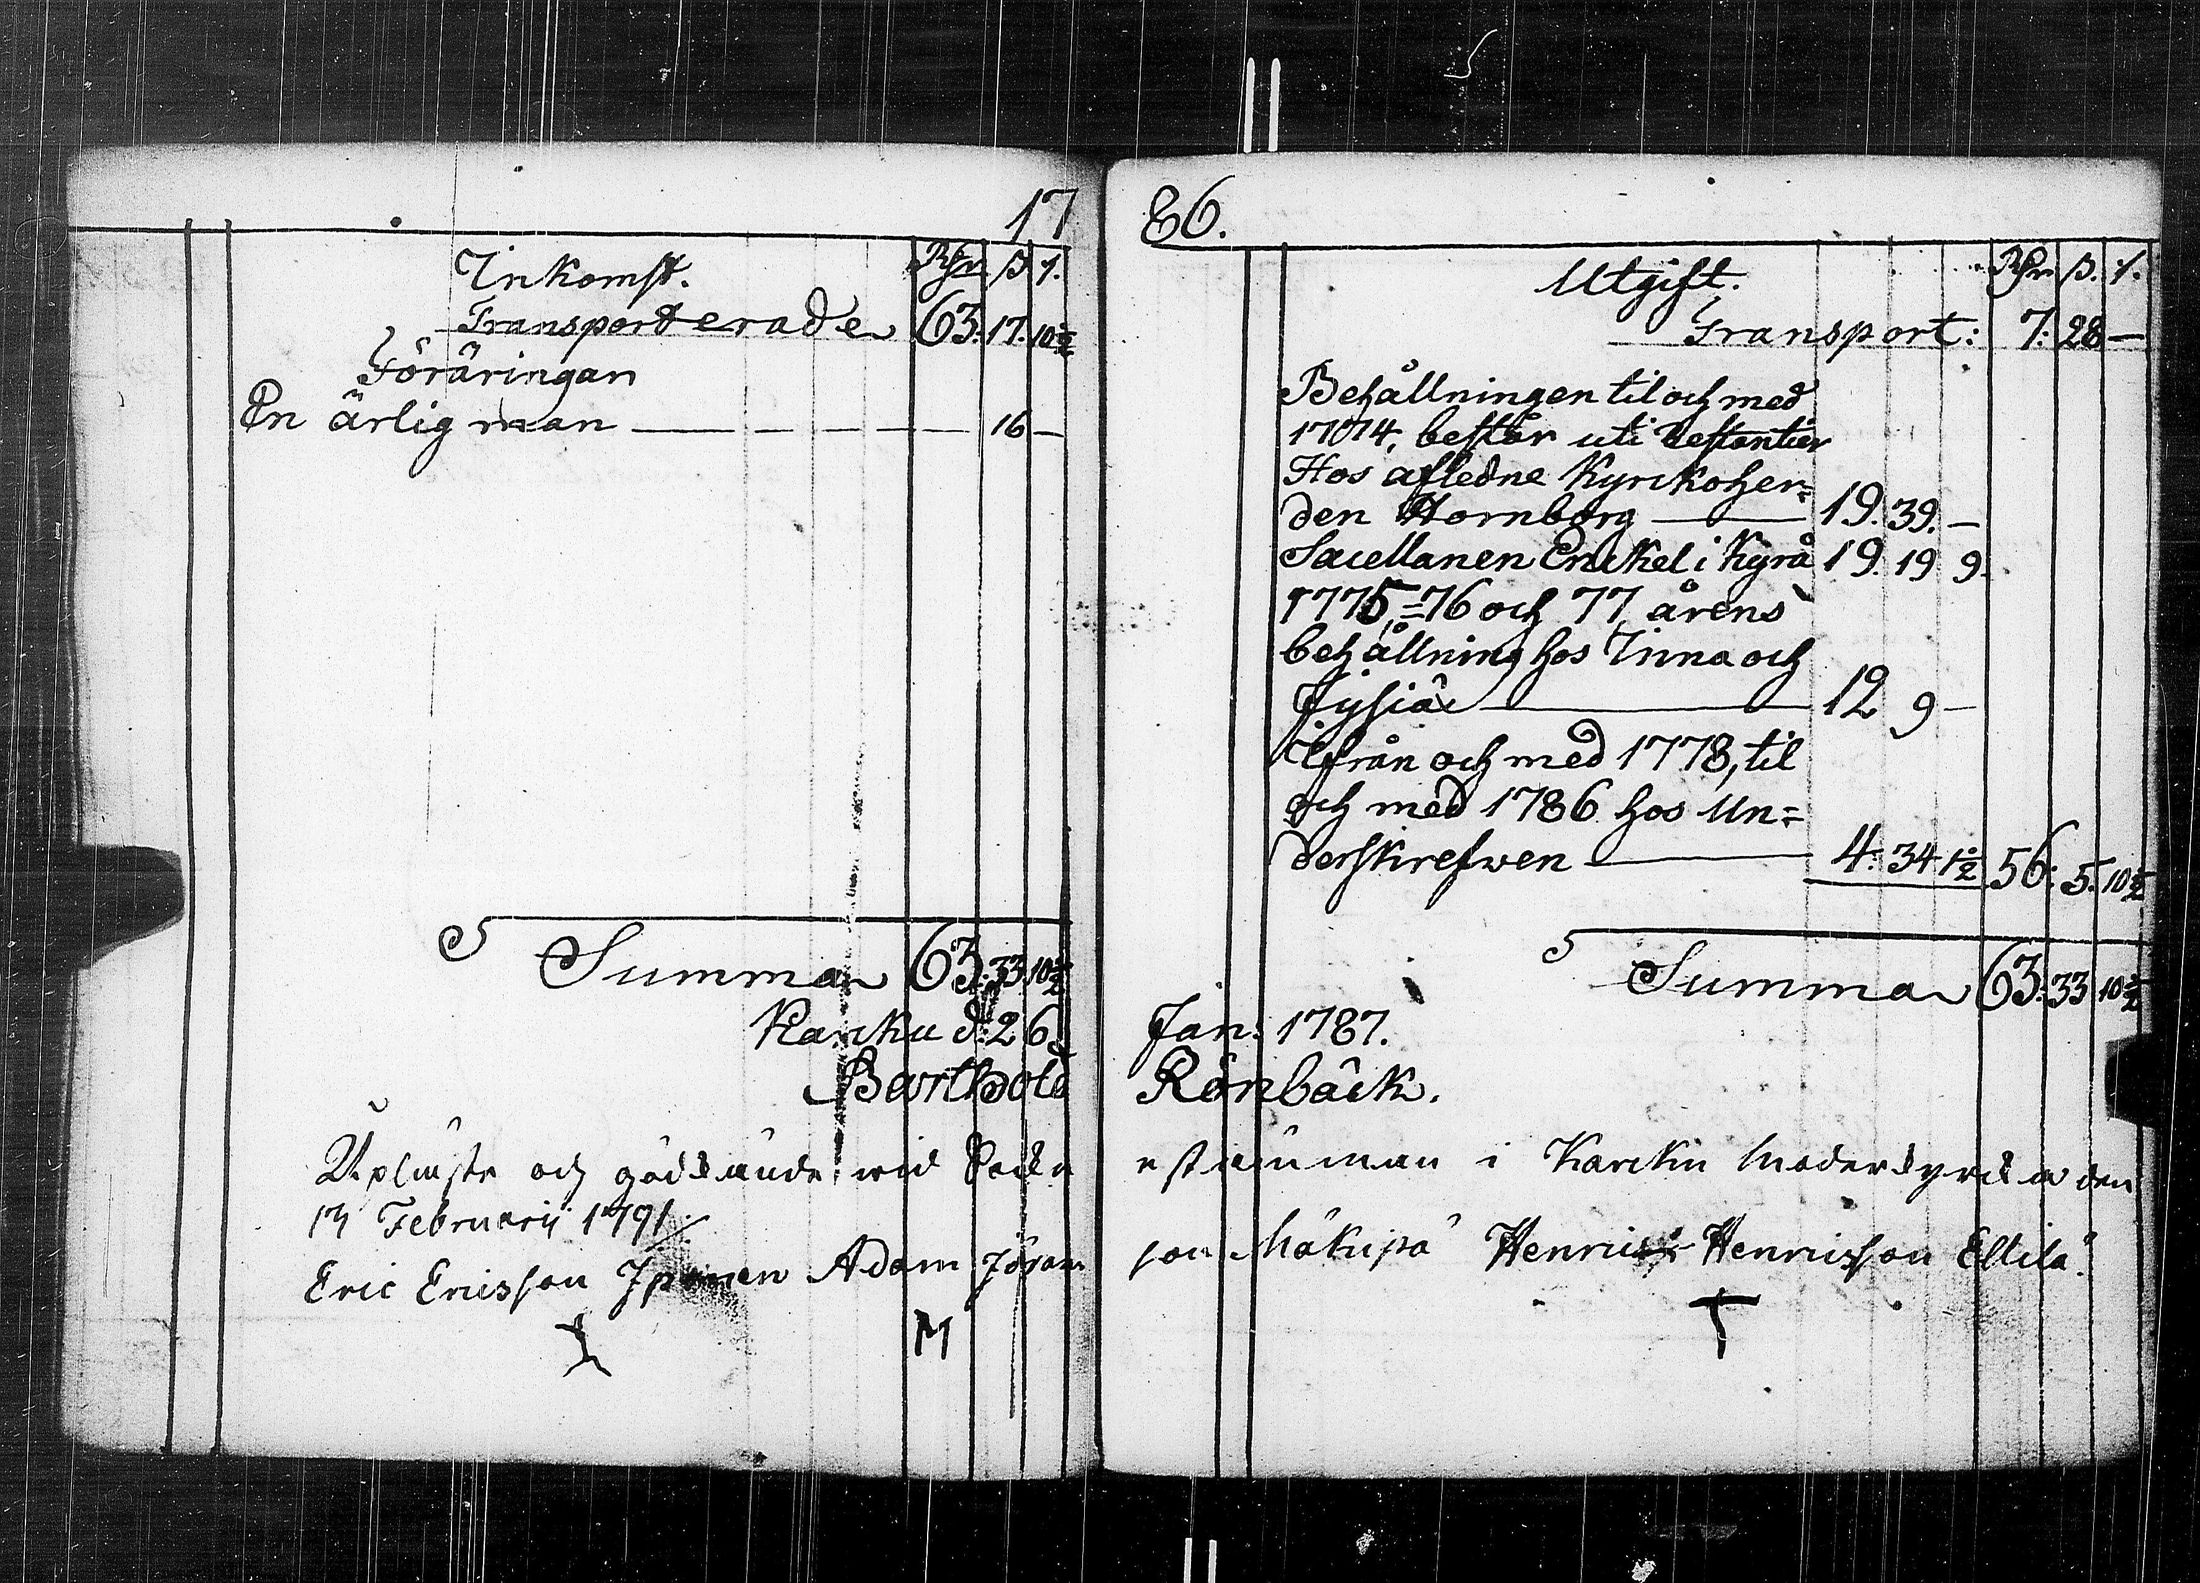 17
Inkomst. Rdr ß r.
Transporterade 63. 17. 10½
Föräringar
En ärlig man — — — — — 16 —
Summa 63: 33 10½
Karcku d: 26
Barthold
Upläste och godkände wid Sockn
13 Februarii 1791.
Eric Ericsson Adam Jörans
M
86.
Utgift. Rdr ß. r.
Transport: 7: 28 —
Behållningen til och med
1774, består uti Restantier
Hos afledne Kyrckoher=
den Hornborg — 19. 39. —
Sacellanen Enckel i Kyrå 19. 19 9.
1775,=76 och 77, årens
behållning hos Inna och
Jysiä — 12 9 —
Ifrån och med 1778, til
och med 1786 hos Un=
derskrefwen — 4: 34 1½ 56: 5. 10½
Summa 63: 33 10½
Jan: 1787.
Rönbäck.
estämman i Karcku Moderkyrcka den
son Mäkipä Henric Henricsson Ellilä.
T